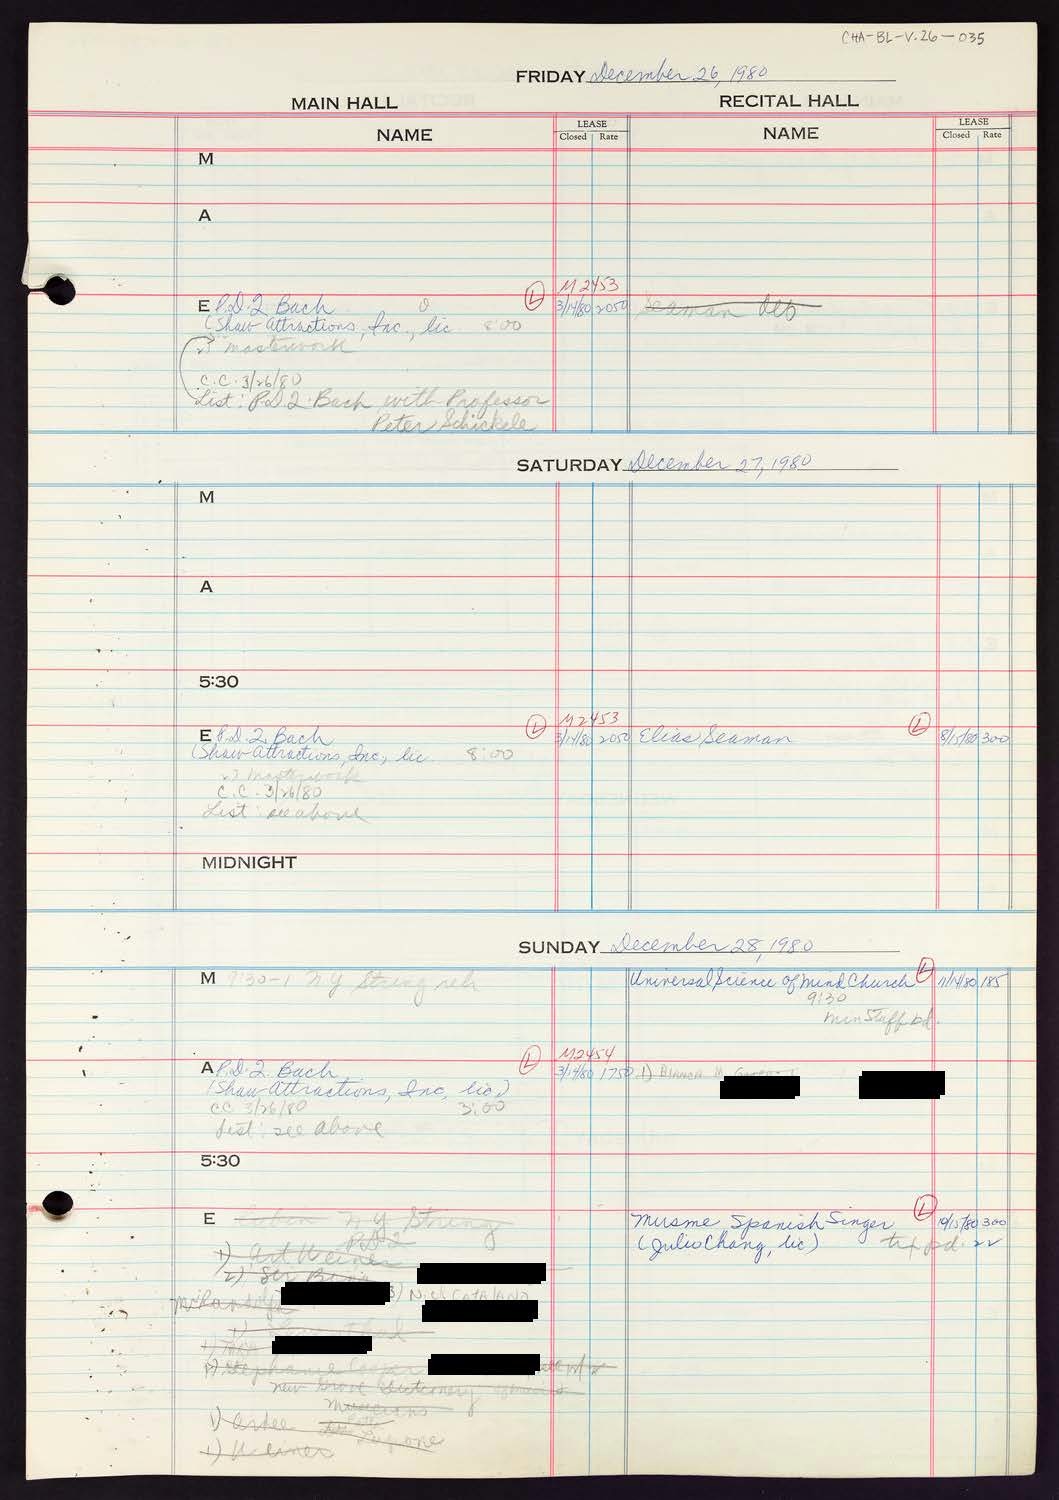 CHA-BL-V.26-035
FRIDAY December 26, 1980
MAIN HALL
RECITAL HALL
NAME
LEASE
Closed Rate
NAME
LEASE
Closed Rate
M
A
M2453
E P.D.Q. Bach L 3/14/80 2050 Seaman
(Shaw Attractions, Inc., lic. 8:00
masterwork
C.C. 3/26/80
List: P.D.Q. Bach with Professor
Peter Schickele
SATURDAY December 27, 1980
M
A
5:30
M2453
E P.D.Q. Bach L 3/14/80 2050 Elias Seaman L 8/15/80 300
(Shaw Attractions, Inc., lic. 8:00
masterwork
C.C. 3/26/80
List: see above
MIDNIGHT
SUNDAY December 28, 1980
M 9:30-1 NY String reh Universal Science of Mind Church L 11/14/80 185
9:30
min staff pd.
M2454
A P.D.Q. Bach L 3/14/80 1750 1) Bianca M
(Shaw Attractions, Inc, lic.)
CC 3/26/80 3:00
List: see above
5:30
E NY String Musme Spanish Singer L 10/15/80 300
P.D.Q (Julio Chang, lic) pd. 22
1) Art Weiner
2)
3) Nick Catalano
1)
1)
Stephanie Cooper
New Grove Dictionary
Musicians
1)
1) Weiner